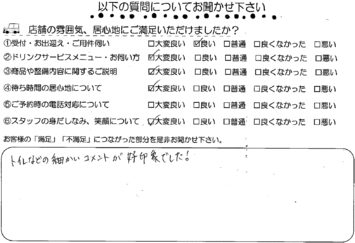 以下の質問についてお聞かせ下さい
店舗の雰囲気、居心地にご満足いただけましたか?
①受付・お出迎え・ご用件伺い □大変良い ☑良い □普通 □良くなかった □悪い
②ドリンクサービスメニュー・お伺い方 ☑大変良い □良い □普通 □良くなかった □悪い
③商品や整備内容に関するご説明 ☑大変良い □良い □普通 □良くなかった □悪い
④待ち時間の居心地について ☑大変良い □良い □普通 □良くなかった □悪い
⑤ご予約時の電話対応について □大変良い □良い □普通 □良くなかった □悪い
⑥スタッフの身だしなみ、笑顔について ☑大変良い □良い □普通 □良くなかった □悪い
お客様の「満足」「不満足」につながった部分を是非お聞かせ下さい。
トイレなどの細かいコメントが好印象でした!